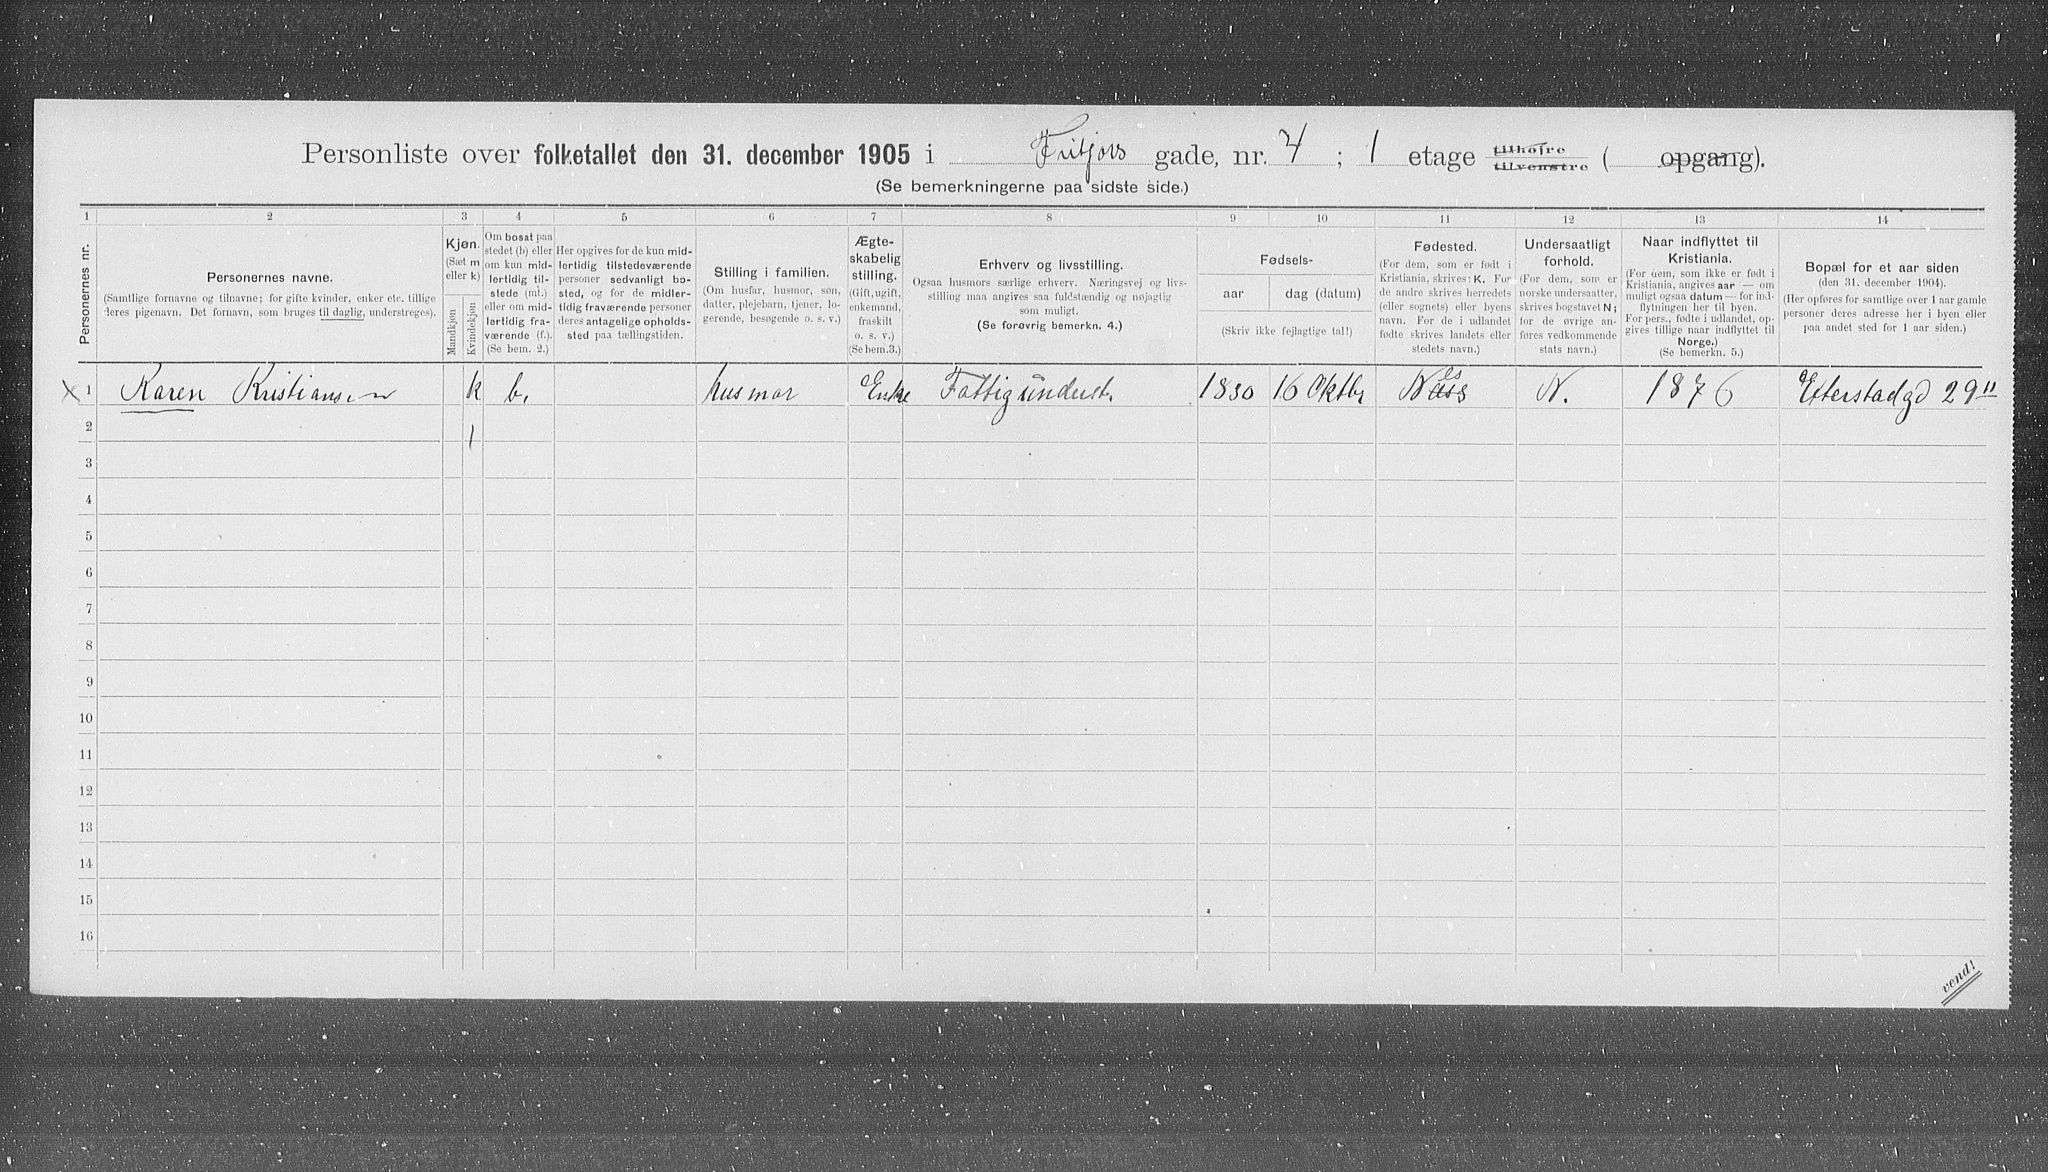 Personliste over folketallet den 31. december 1905 i Fritjofs gade, nr. 4 ; 1 etage tilhøjre tilvenstre ( opgang).
(Se bemerkningerne paa sidste side.)
1 2 3 4 5 6 7 8 9 10 11 12 13 14
Personernes nr.
Personernes navne.
(Samtlige fornavne og tilnavne; for gifte kvinder, enker etc. tillige
deres pigenavn. Det fornavn, som bruges til daglig, understreges).
Kjøn.
(Sæt m
eller k)
Mandkjøn
Kvindekjøn
Om bosat paa
stedet (b) eller
om kun mid-
lertidig til-
stede (mt.)
eller om mid-
lertidig fra-
værende (f.).
(Se bem. 2.)
Her opgives for de kun mid-
lertidig tilstedeværende
personer sedvanligt bo-
sted, og for de midler-
tidig fraværende personer
deres antagelige opholds-
sted paa tællingstiden.
Stilling i familien.
(Om husfar, husmor, søn,
datter, plejebarn, tjener, lo-
gerende, besøgende o. s. v.)
Ægte-
skabelig
stilling.
(Gift, ugift,
enkemand,
fraskilt
o. s. v.)
(Se bem.3.)
Erhverv og livsstilling.
Ogsaa husmors særlige erhverv. Næringsvej og livs-
stilling maa angives saa fuldstændig og nøjagtig
som muligt.
(Se forøvrig bemerkn. 4.)
Fødsels-
aar
dag (datum)
(Skriv ikke fejlagtige tal!)
Fødested.
(For dem, som er født i
Kristiania, skrives: K. For
de andre skrives herredets
(eller sognets) eller byens
navn. For de i udlandet
fødte skrives landets eller
stedets navn.)
Undersaatligt
forhold.
(For dem, som er
norske undersaatter,
skrives bogstavet N;
for de øvrige an-
føres vedkommende
stats navn.)
Naar indflyttet til
Kristiania.
(For dem, som ikke er født i
Kristiania, angives aar — om
muligt ogsaa datum — for ind-
flytningen her til byen.
For pers., fødte i udlandet, op-
gives tillige naar indflyttet til
Norge.)
(Se bemerkn. 5.)
Bopæl for et aar siden
(den 31. december 1904).
(Her opføres for samtlige over 1 aar gamle
personer deres adresse her i byen eller
paa andet sted for 1 aar siden.)
x 1 Karen Kristiansen k b. husmor Enke Fattigunderst. 1830 16 Oktbr Næss es N. 1876 Etterstadgd 29 II
2 1
3
4
5
6
7
8
9
10
11
12
13
14
15
16
vend!